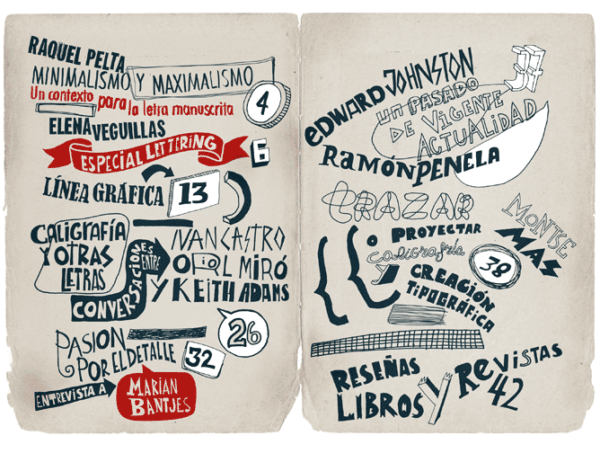 RAQUEL PELTA
MINIMALISMO Y MAXIMALISMO
Un contexto para la letra manuscrita
4
ELENA VEGUILLAS
ESPECIAL LETTERING
6
LÍNEA GRÁFICA 13
CALIGRAFÍA
Y OTRAS
LETRAS
CONVERSACIONES ENTRE
IVAN CASTRO
ORIOL MIRÓ
Y KEITH ADAMS
26
PASION
POR EL DETALLE
32
ENTREVISTA A
MARIAN
BANTJES
EDWARD JOHNSTON
UN PASADO
DE VIGENTE
ACTUALIDAD
RAMÓN PENELA
TRAZAR
O PROYECTAR
CALIGRAFÍA
Y
CREACIÓN
TIPOGRÁFICA
MONTSE
MAS
38
RESEÑAS
LIBROS Y REVISTAS
42